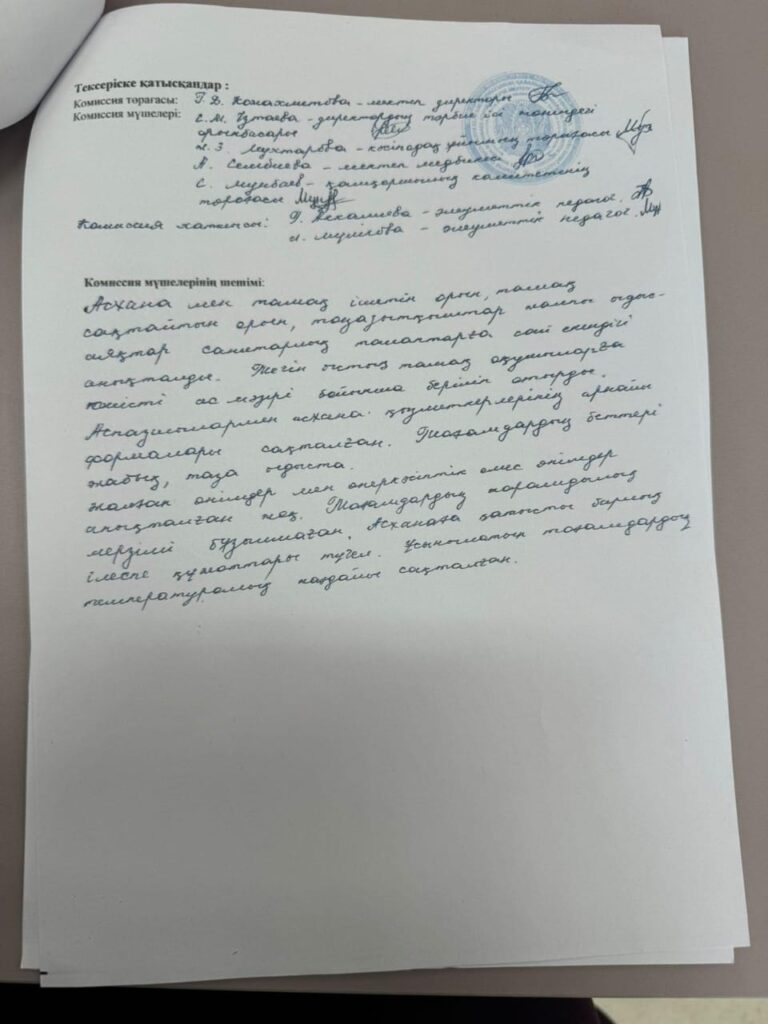 Тексеріске қатысқандар :
Комиссия төрағасы: Г. Д. Конахметова – мектеп директоры
Комиссия мүшелері: С. М. – директордың тәрбие ісі жөніндегі
орынбасары
З. Мухтарова – кәсіподақ ұйымның төрағасы
А. – мектеп медбикесі
С. Мунбаев – қамқоршылық комитетінің
төрағасы
Комиссия хатшысы: Г. Аскалиева – әлеуметтік педагог.
– әлеуметтік педагог.
Комиссия мүшелерінің шешімі:
Асхана мен тамақ ішетін орын, тамақ
сақтайтын орын, тоңазытқыштар жалпы ыдыс-
аяқтар санитарлық талаптарға сай екендігі
анықталды. Тегін ыстық тамақ оқушыларға
тиісті ас мәзірі бойынша беріліп отырды.
Аспазшылармен асхана қызметкерлерінің арнайы
формалары сақталған. Тағамдардың беттері
жабық, таза ыдыста.
Жалған өнімдер мен өнеркәсіптік емес өнімдер
анықталған жоқ. Тағамдардың жарамдылық
мерзімі бұзылмаған. Асханаға қатысты барлық
ілеспе құжаттары түгел. Ұсынылатын тағамдардың
температуралық жағдайы сақталған.